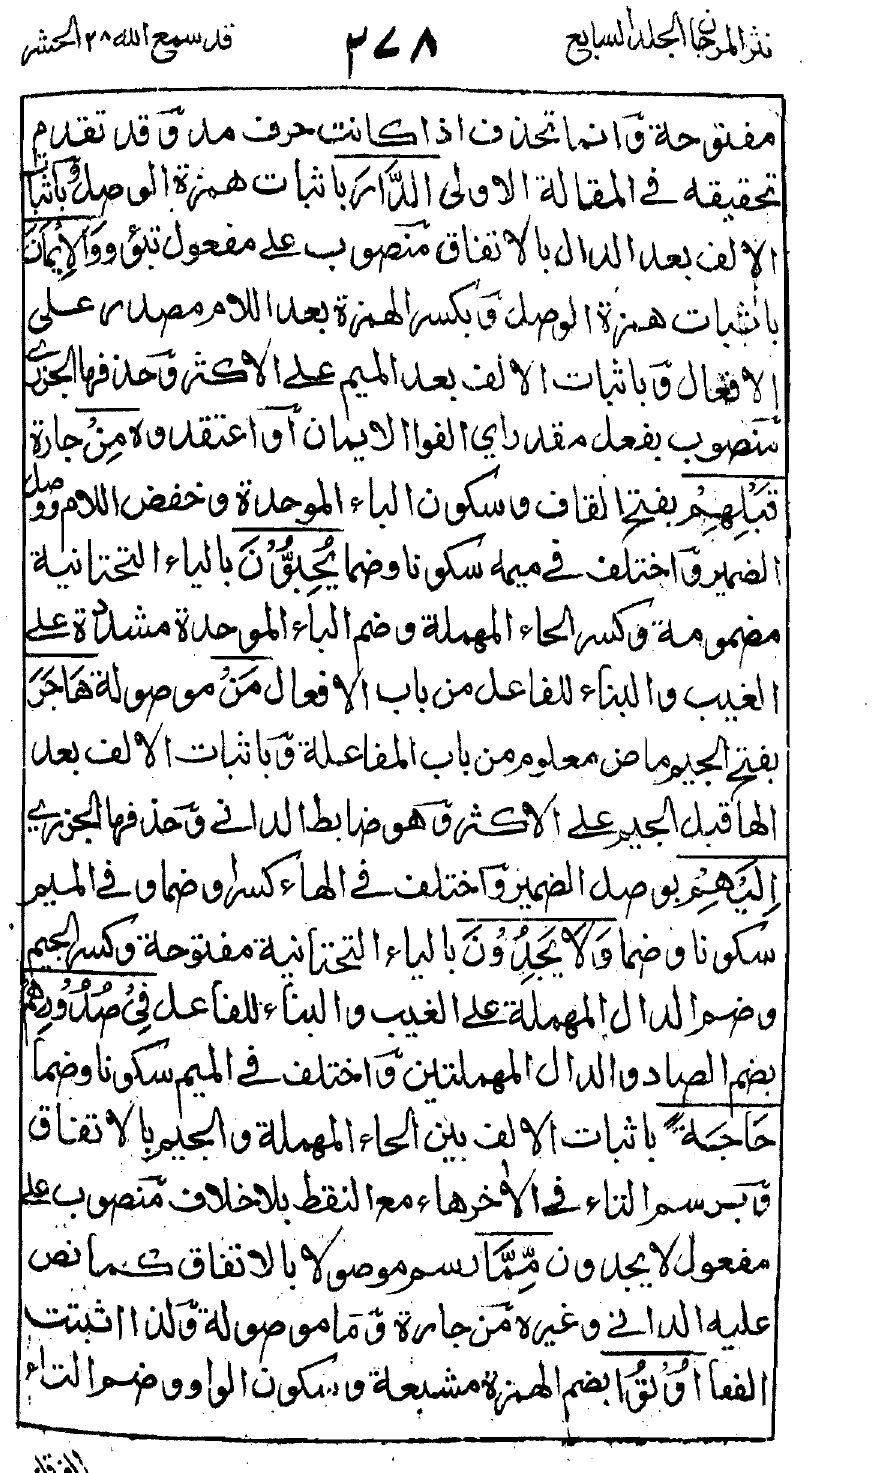 نثر المرجان الجلد السابع ٢٧٨ قد سمع الله ٢٨ الحشر
مفتوحة وَانما تحذف اذا كانت حرف مد وَقد تقدم
تحقيقه في المقالة الاولى الدَّارَ باثبات همزة الوصل وَباثبات
الالف بعد الدال بالاتفاق مَنصوب على مفعول تبوّؤ وَالْإِيْمَانَ
باثبات همزة الوصل وَبكسر الهمزة بعد اللام مصدر على
الافعال وَباثبات الالف بعد الميم على الاكثر وَحذفها الجزري
مَنصوب بفعل مقدر اي الفوا الايمان اَو اعتقدوه مِنْ جارة
قَبْلِهِمْ بفتح القاف وسكون الباء الموحدة وخفض اللام ووصل
الضمير وَاختلف في ميمه سكونا وضما يُحِبُّوْنَ بالياء التحتانية
مضمومة وكسر الحاء المهملة وضم الباء الموحدة مشددة على
الغيب والبناء للفاعل من باب الافعال مَنْ موصولة هَاجَرَ
بفتح الجيم ماض معلوم من باب المفاعلة وَباثبات الالف بعد
الها قبل الجيم على الاكثر وَهو ضابط الداني وَحذفها الجزري
اِلَيْهِمْ بوصل الضمير وَاختلف في الهاء كسرا وضما وفي الميم
سكونا وضما وَلَا يَجِدُوْنَ بالياء التحتانية مفتوحة وكسر الجيم
وضم الدال المهملة على الغيب والبناء للفاعل فِيْ صُدُوْرِهِمْ
بضم الصاد والدال المهملتين وَاختلف في الميم سكونا وضما
حَاجَةً باثبات الالف بين الحاء المهملة والجيم بالاتفاق
وَبرسم التاء في الأخر هاء مع النقط بلاخلاف مَنصوب على
مفعول لا يجدون مِّمَّا رسم موصولا بالاتفاق كما نص
عليه الداني وغيره مَن جارة وَمَا موصولة وَلذا اثبتت
الفها اُوْتُوْا بضم الهمزة مشبعة وسكون الواو وضم التاء